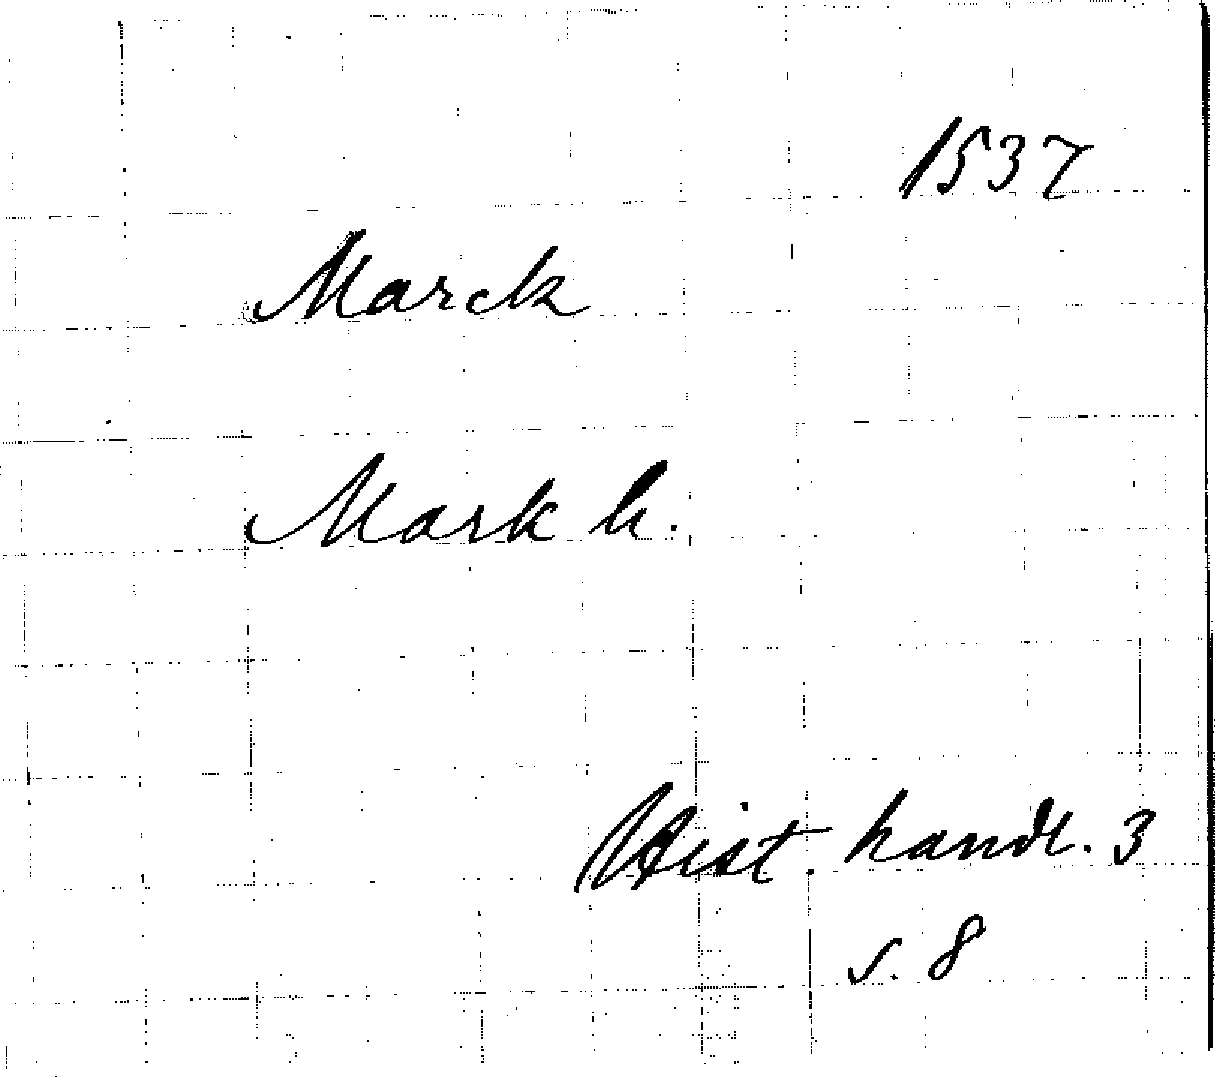 1537
Marck
Mark h.
Hist. handl. 3
s. 8